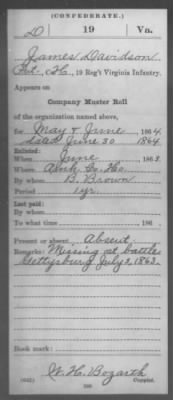 (CONFEDERATE.)
D 19 Va.
James Davidson
Pvt., Co. H., 19 Reg't Virginia Infantry.
Appears on
Company Muster Roll
of the organization named above,
for May & June, 1864.
dated June 30 1864
Enlisted:
When June, 186 3.
Where Amh. C. Ho.
By whom B. Brown
Period 1 yr.
Last paid:
By whom
To what time , 186 .
Present or absent Absent
Remarks: Missing at battle
Gettysburg July 3, 1863.
Book mark:
W. H. Bozarth
(642) Copyist.